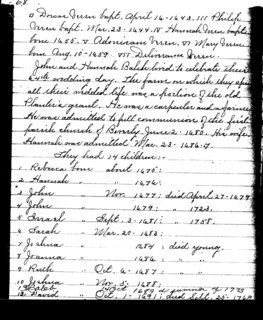 v Dorcas Turen bapt. April 16-1643. III Philip
Turen bapt. Mar. 23-1644. IV Hannah Turen bapt.
born 1655. V Adoniram Turen. VI Mary Turen
born Aug. 10-1659. VII Deliverance Turen.
John and Hannah Balch lived to celebrate their
wedding day. The farm on which they spent
all their wedded life was a portion of the old
Planter's grant. He was a carpenter and a farmer.
He was admitted to full communion of the first
parish church of Beverly June 2-1680. His wife
Hannah was admitted Mar. 23-1686-7.
They had 14 children:-
1 Rebecca born about 1675:
2 Hannah " " 1676:
3 John " Nov. 1677: died April 27-1679
4 John " 1679: " " 1723.
5 Israel " Sept. 3-1681: " 1758.
6 Sarah " Mar. 20-1683:
7 Joshua " 1684: died young.
8 Joanna " 1686: " "
9 Ruth " Oct. 4-1687: " "
10 Joshua " Nov. 5-1688:
11 Caleb " Oct. 1689 d. 1723
12 David " Oct. 1-1691; died Sept. 25-1769